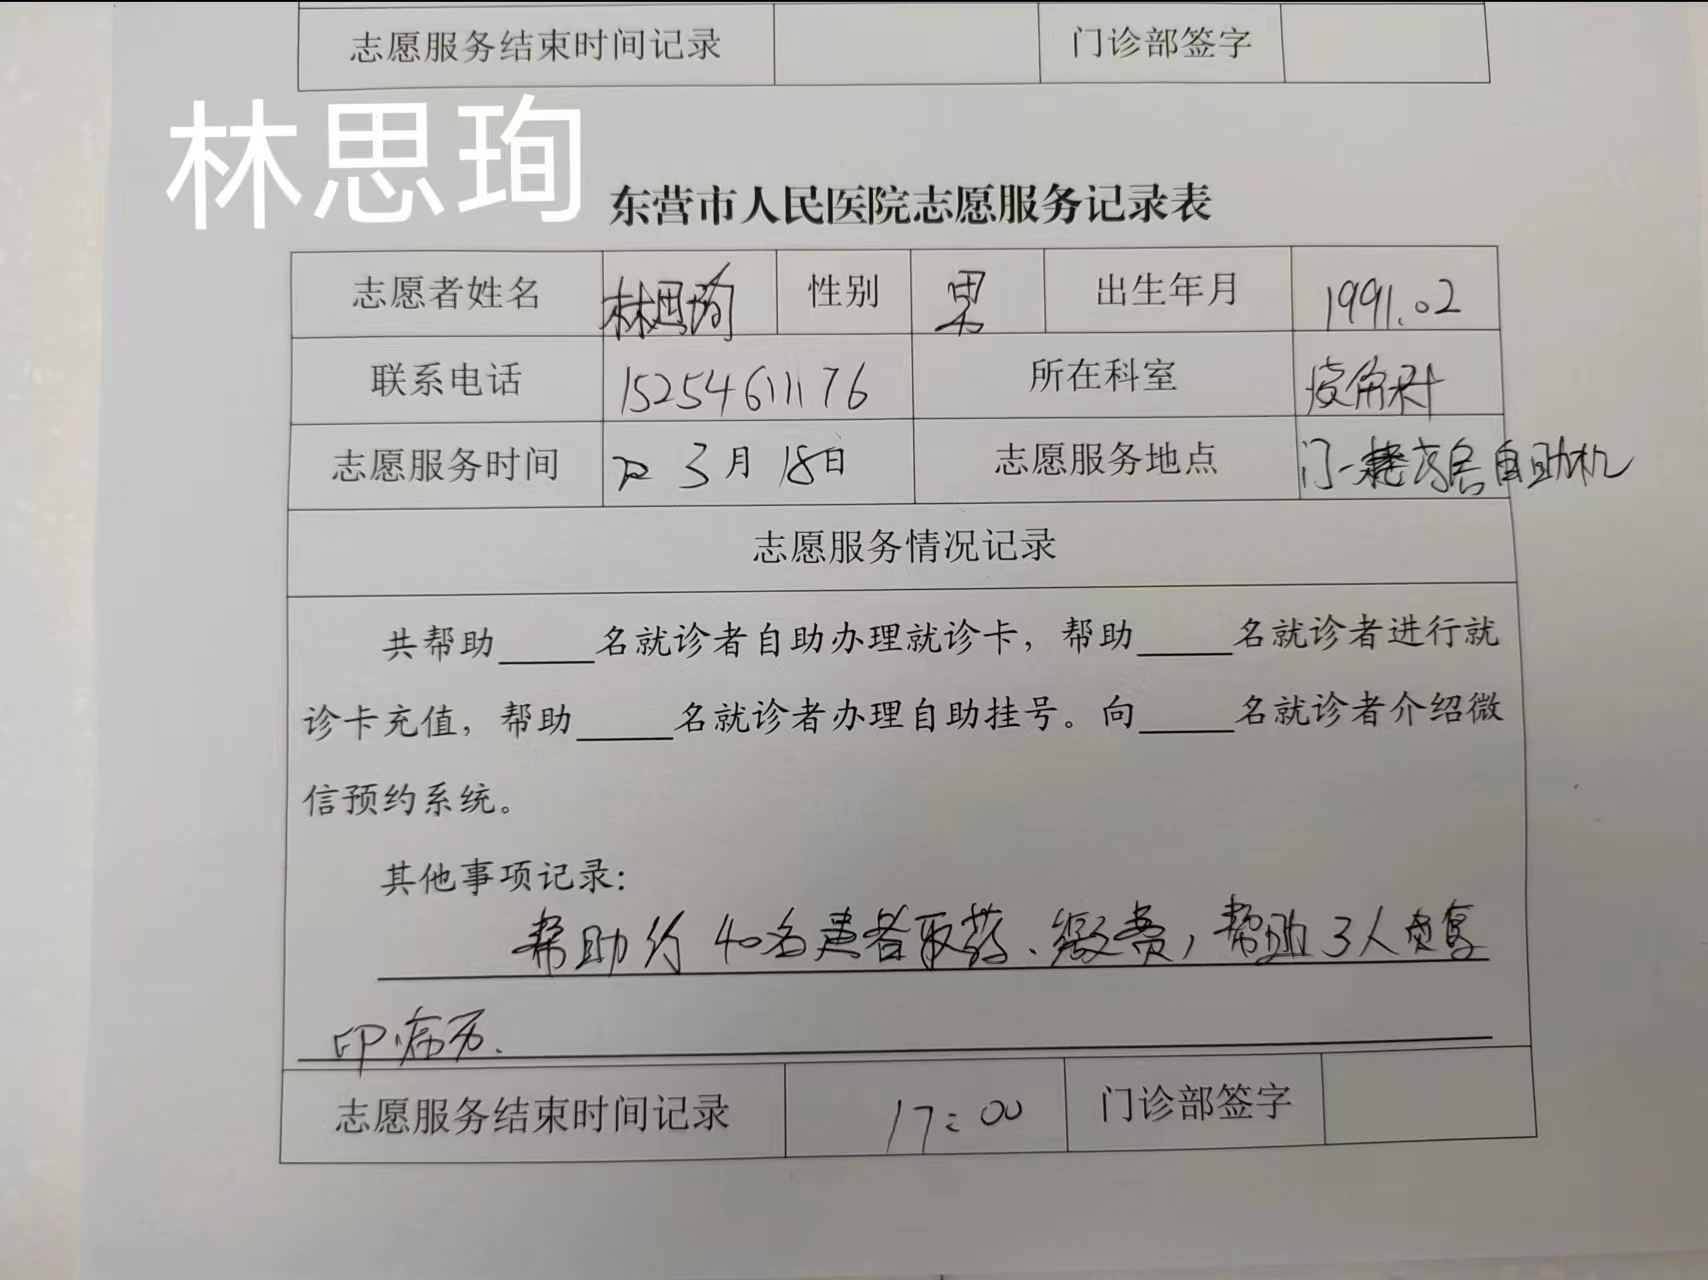 志愿服务结束时间记录 门诊部签字
林思珣
东营市人民医院志愿服务记录表
志愿者姓名 林思珣 性别 男 出生年月 1991.02
联系电话 15254611176 所在科室 疫角科
志愿服务时间 3月18日 志愿服务地点 门一楼药房自助机
志愿服务情况记录
共帮助_____名就诊者自助办理就诊卡，帮助_____名就诊者进行就
诊卡充值，帮助_____名就诊者办理自助挂号。向_____名就诊者介绍微
信预约系统。
其他事项记录：
帮助约40名患者取药、缴费，帮助3人复
印病历.
志愿服务结束时间记录 17:00 门诊部签字